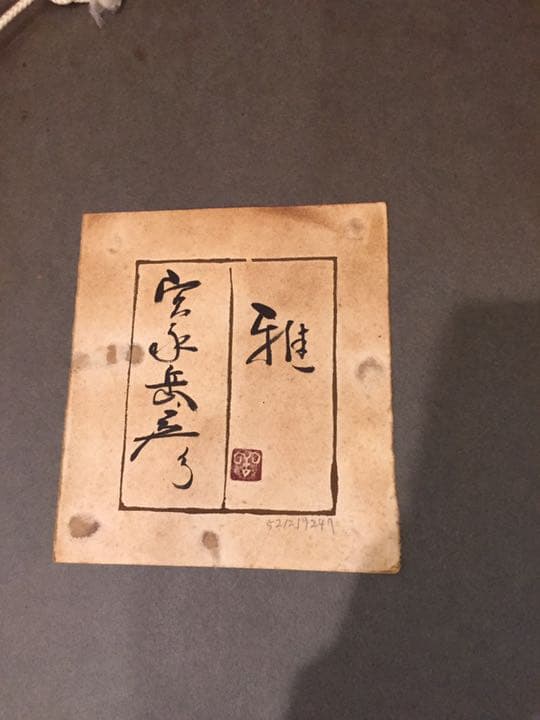 雅
宮永岳彦